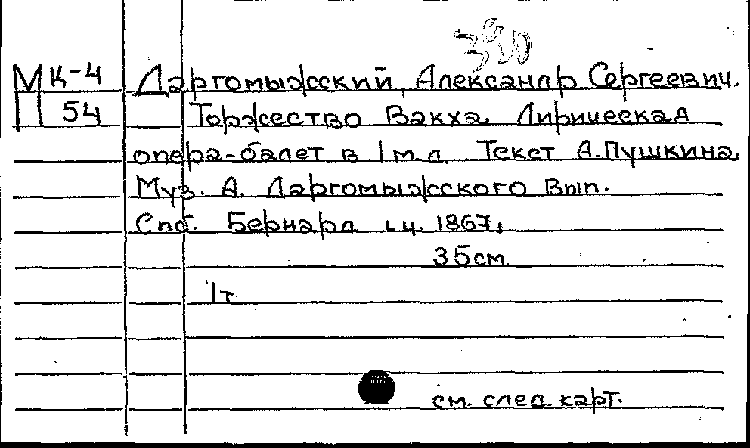 390
М К-4 Даргомыжский, Александр Сергеевич.
П 54 Торжество Вакха. Лирическая
опера-балет в 1 м.д. Текст А. Пушкина,
Муз. А. Даргомыжского Вып.
Спб. Бернард ц. 1867,
35см
1т
см. след. карт.